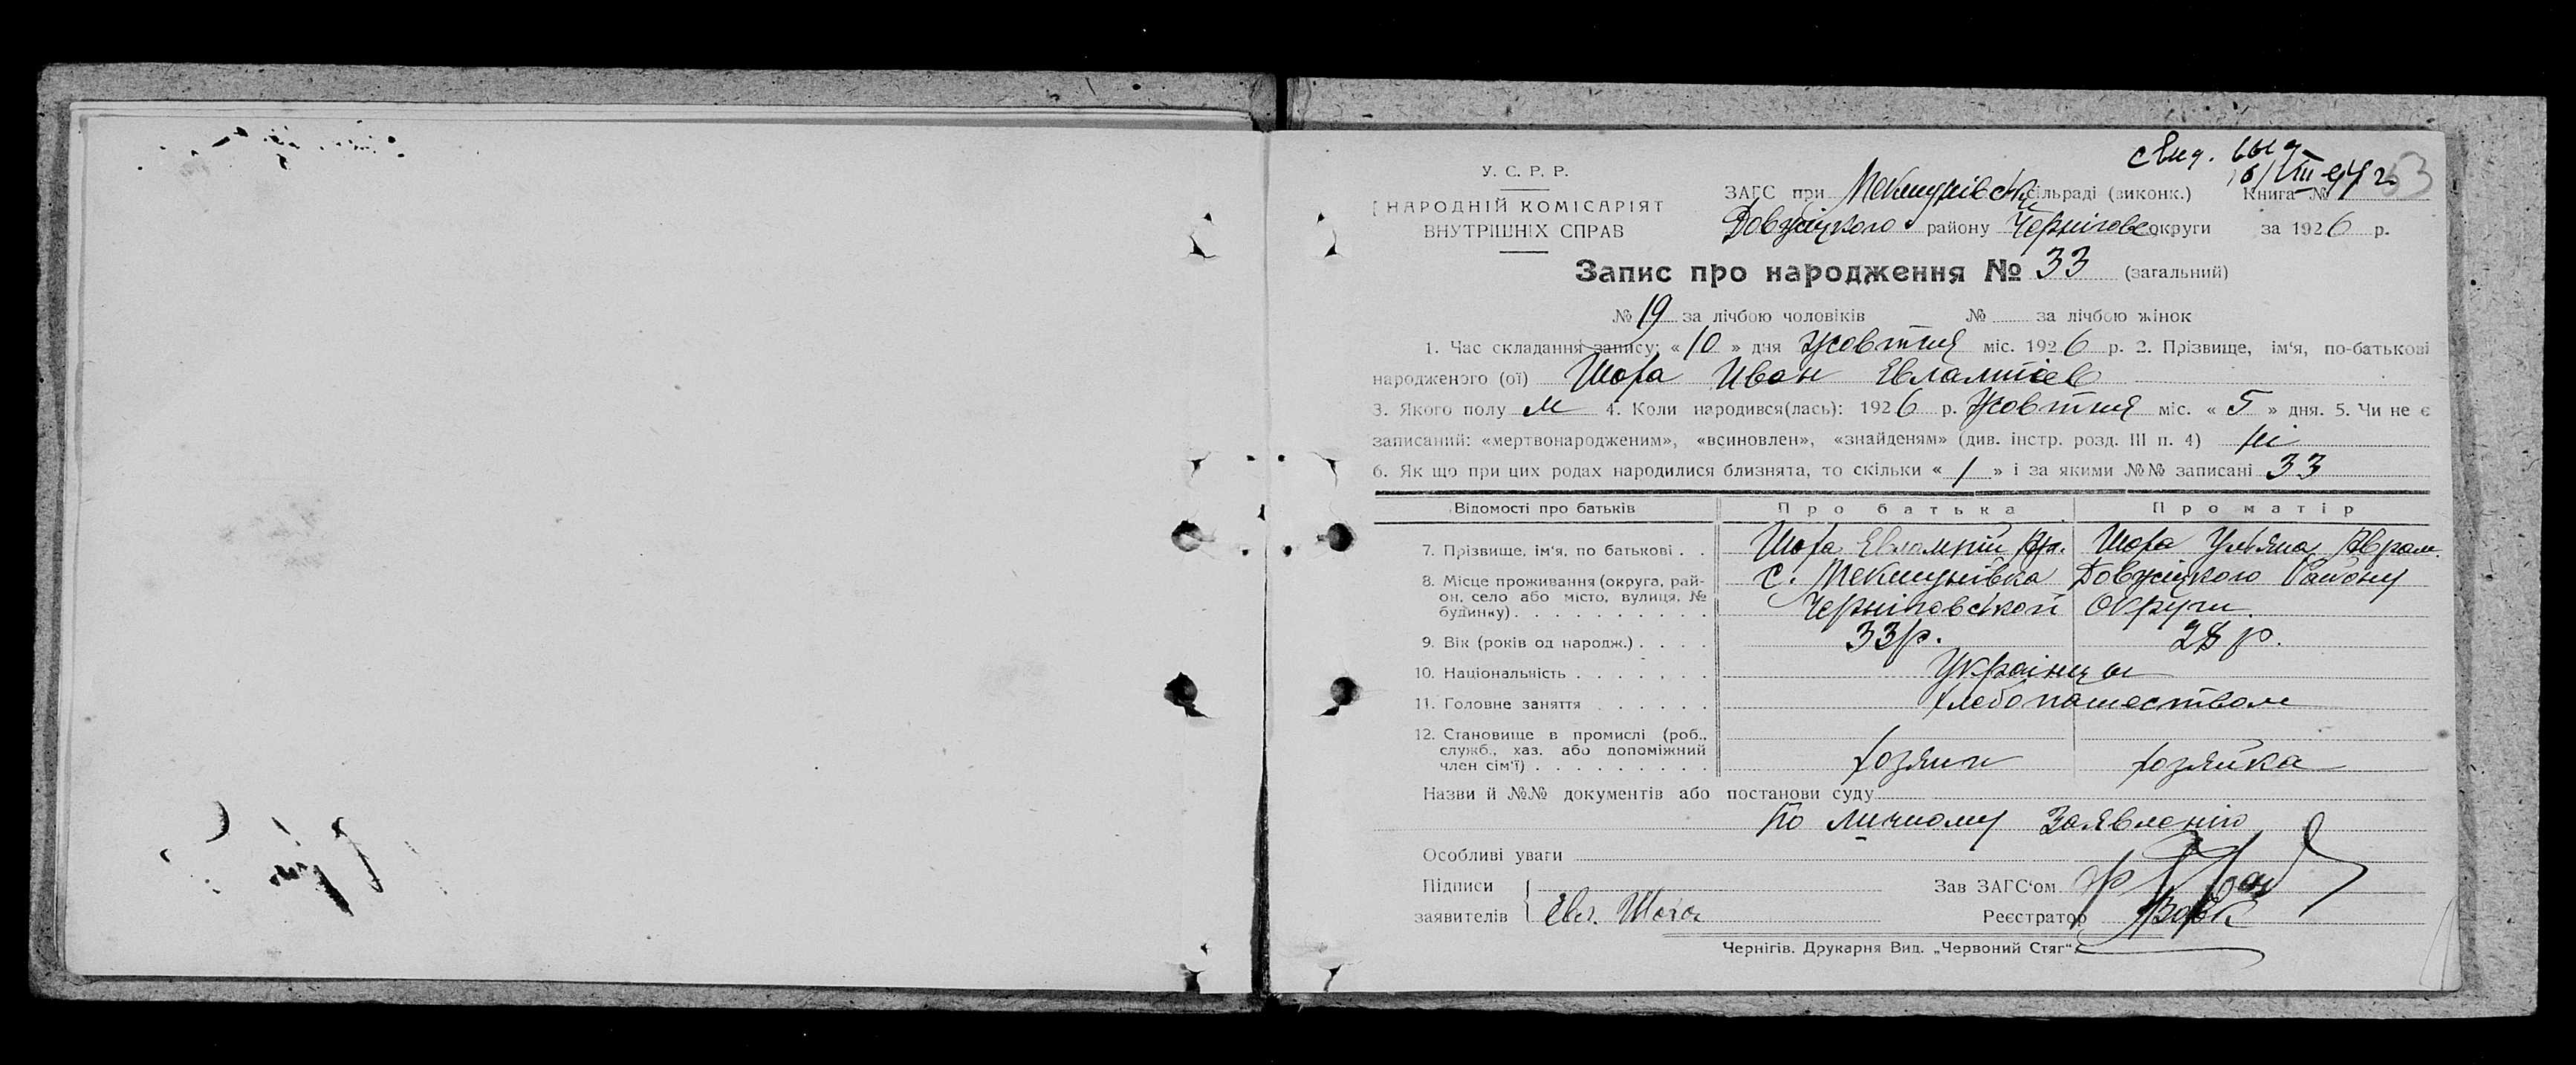 свид. выд.
У. С. Р. Р.
16/VIII-94 г. 53
ЗАГС при Мекшунівській сільраді (виконк.) Книга №
НАРОДНІЙ КОМІСАРІЯТ
ВНУТРІШНІХ СПРАВ
Довжицкого району Черніговс. округи за 1926 р.
Запис про народження № 33 (загальний)
№ 19 за лічбою чоловіків № за лічбою жінок
1. Час складання запису: «10» дня Жовтня міс. 1926 р. 2. Прізвище, ім'я, по-батькові
народженого (ої) Шора Иван Евлампіев
3. Якого полу м 4. Коли народився(лась): 1926 р. Жовтня міс. «5» дня. 5. Чи не є
записаний: «мертвонародженим», «всиновлен», «знайденям» (див. інстр. розд. III п. 4) ні
6. Як що при цих родах народилися близнята, то скільки «1» і за якими №№ записані 33
Відомості про батьків Про батька Про матір
7. Прізвище, ім'я, по батькові . . Шора Евлампій Шора Ульяна Аврам.
8. Місце проживання (округа, рай- с. Мекшунівка Довжицкого Району
он, село або місто, вулиця, №
будинку) . . . . . . . . . . Черніговской Округи.
9. Вік (років од народж.) . . . . 33 р. 28 р.
10. Національність . . . . . . . Українци
11. Головне заняття . . . . . . хлебопашеством
12. Становище в промислі (роб.,
служб., хаз. або допоміжний
член сім'ї) . . . . . . . . . хозяин хозяйка
Назви й №№ документів або постанови суду
По личному Заявлению
Особливі уваги
Підписи Зав ЗАГС'ом
заявителів Евл. Шора Реєстратор
Чернігів. Друкарня Вид. „Червоний Стяг“.